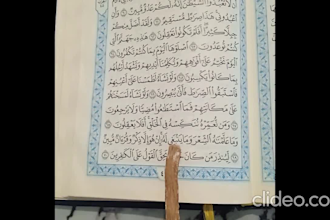 لَّا تَعْبُدُوا۟ ٱلشَّيْطَٰنَ إِنَّهُۥ لَكُمْ عَدُوٌّ مُّبِينٌ ٦٠ وَأَنِ
ٱعْبُدُونِى هَٰذَا صِرَٰطٌ مُّسْتَقِيمٌ ٦١ وَلَقَدْ أَضَلَّ مِنكُمْ
جِبِلًّا كَثِيرًا أَفَلَمْ تَكُونُوا۟ تَعْقِلُونَ ٦٢ هَٰذِهِۦ جَهَنَّمُ ٱلَّتِى
كُنتُمْ تُوعَدُونَ ٦٣ ٱصْلَوْهَا ٱلْيَوْمَ بِمَا كُنتُمْ تَكْفُرُونَ ٦٤
ٱلْيَوْمَ نَخْتِمُ عَلَىٰٓ أَفْوَٰهِهِمْ وَتُكَلِّمُنَآ أَيْدِيهِمْ وَتَشْهَدُ أَرْجُلُهُم
بِمَا كَانُوا۟ يَكْسِبُونَ ٦٥ وَلَوْ نَشَآءُ لَطَمَسْنَا عَلَىٰٓ أَعْيُنِهِمْ
فَٱسْتَبَقُوا۟ ٱلصِّرَٰطَ فَأَنَّىٰ يُبْصِرُونَ ٦٦ وَلَوْ نَشَآءُ لَمَسَخْنَٰهُمْ
عَلَىٰ مَكَانَتِهِمْ فَمَا ٱسْتَطَٰعُوا۟ مُضِيًّا وَلَا يَرْجِعُونَ ٦٧
وَمَن نُّعَمِّرْهُ نُنَكِّسْهُ فِى ٱلْخَلْقِ أَفَلَا يَعْقِلُونَ ٦٨
وَمَا عَلَّمْنَٰهُ ٱلشِّعْرَ وَمَا يَنۢبَغِى لَهُۥٓ إِنْ هُوَ إِلَّا ذِكْرٌ وَقُرْءَانٌ مُّبِينٌ ٦٩
لِّيُنذِرَ مَن كَانَ حَيًّا وَيَحِقَّ ٱلْقَوْلُ عَلَى ٱلْكَٰفِرِينَ ٧٠
clideo.c